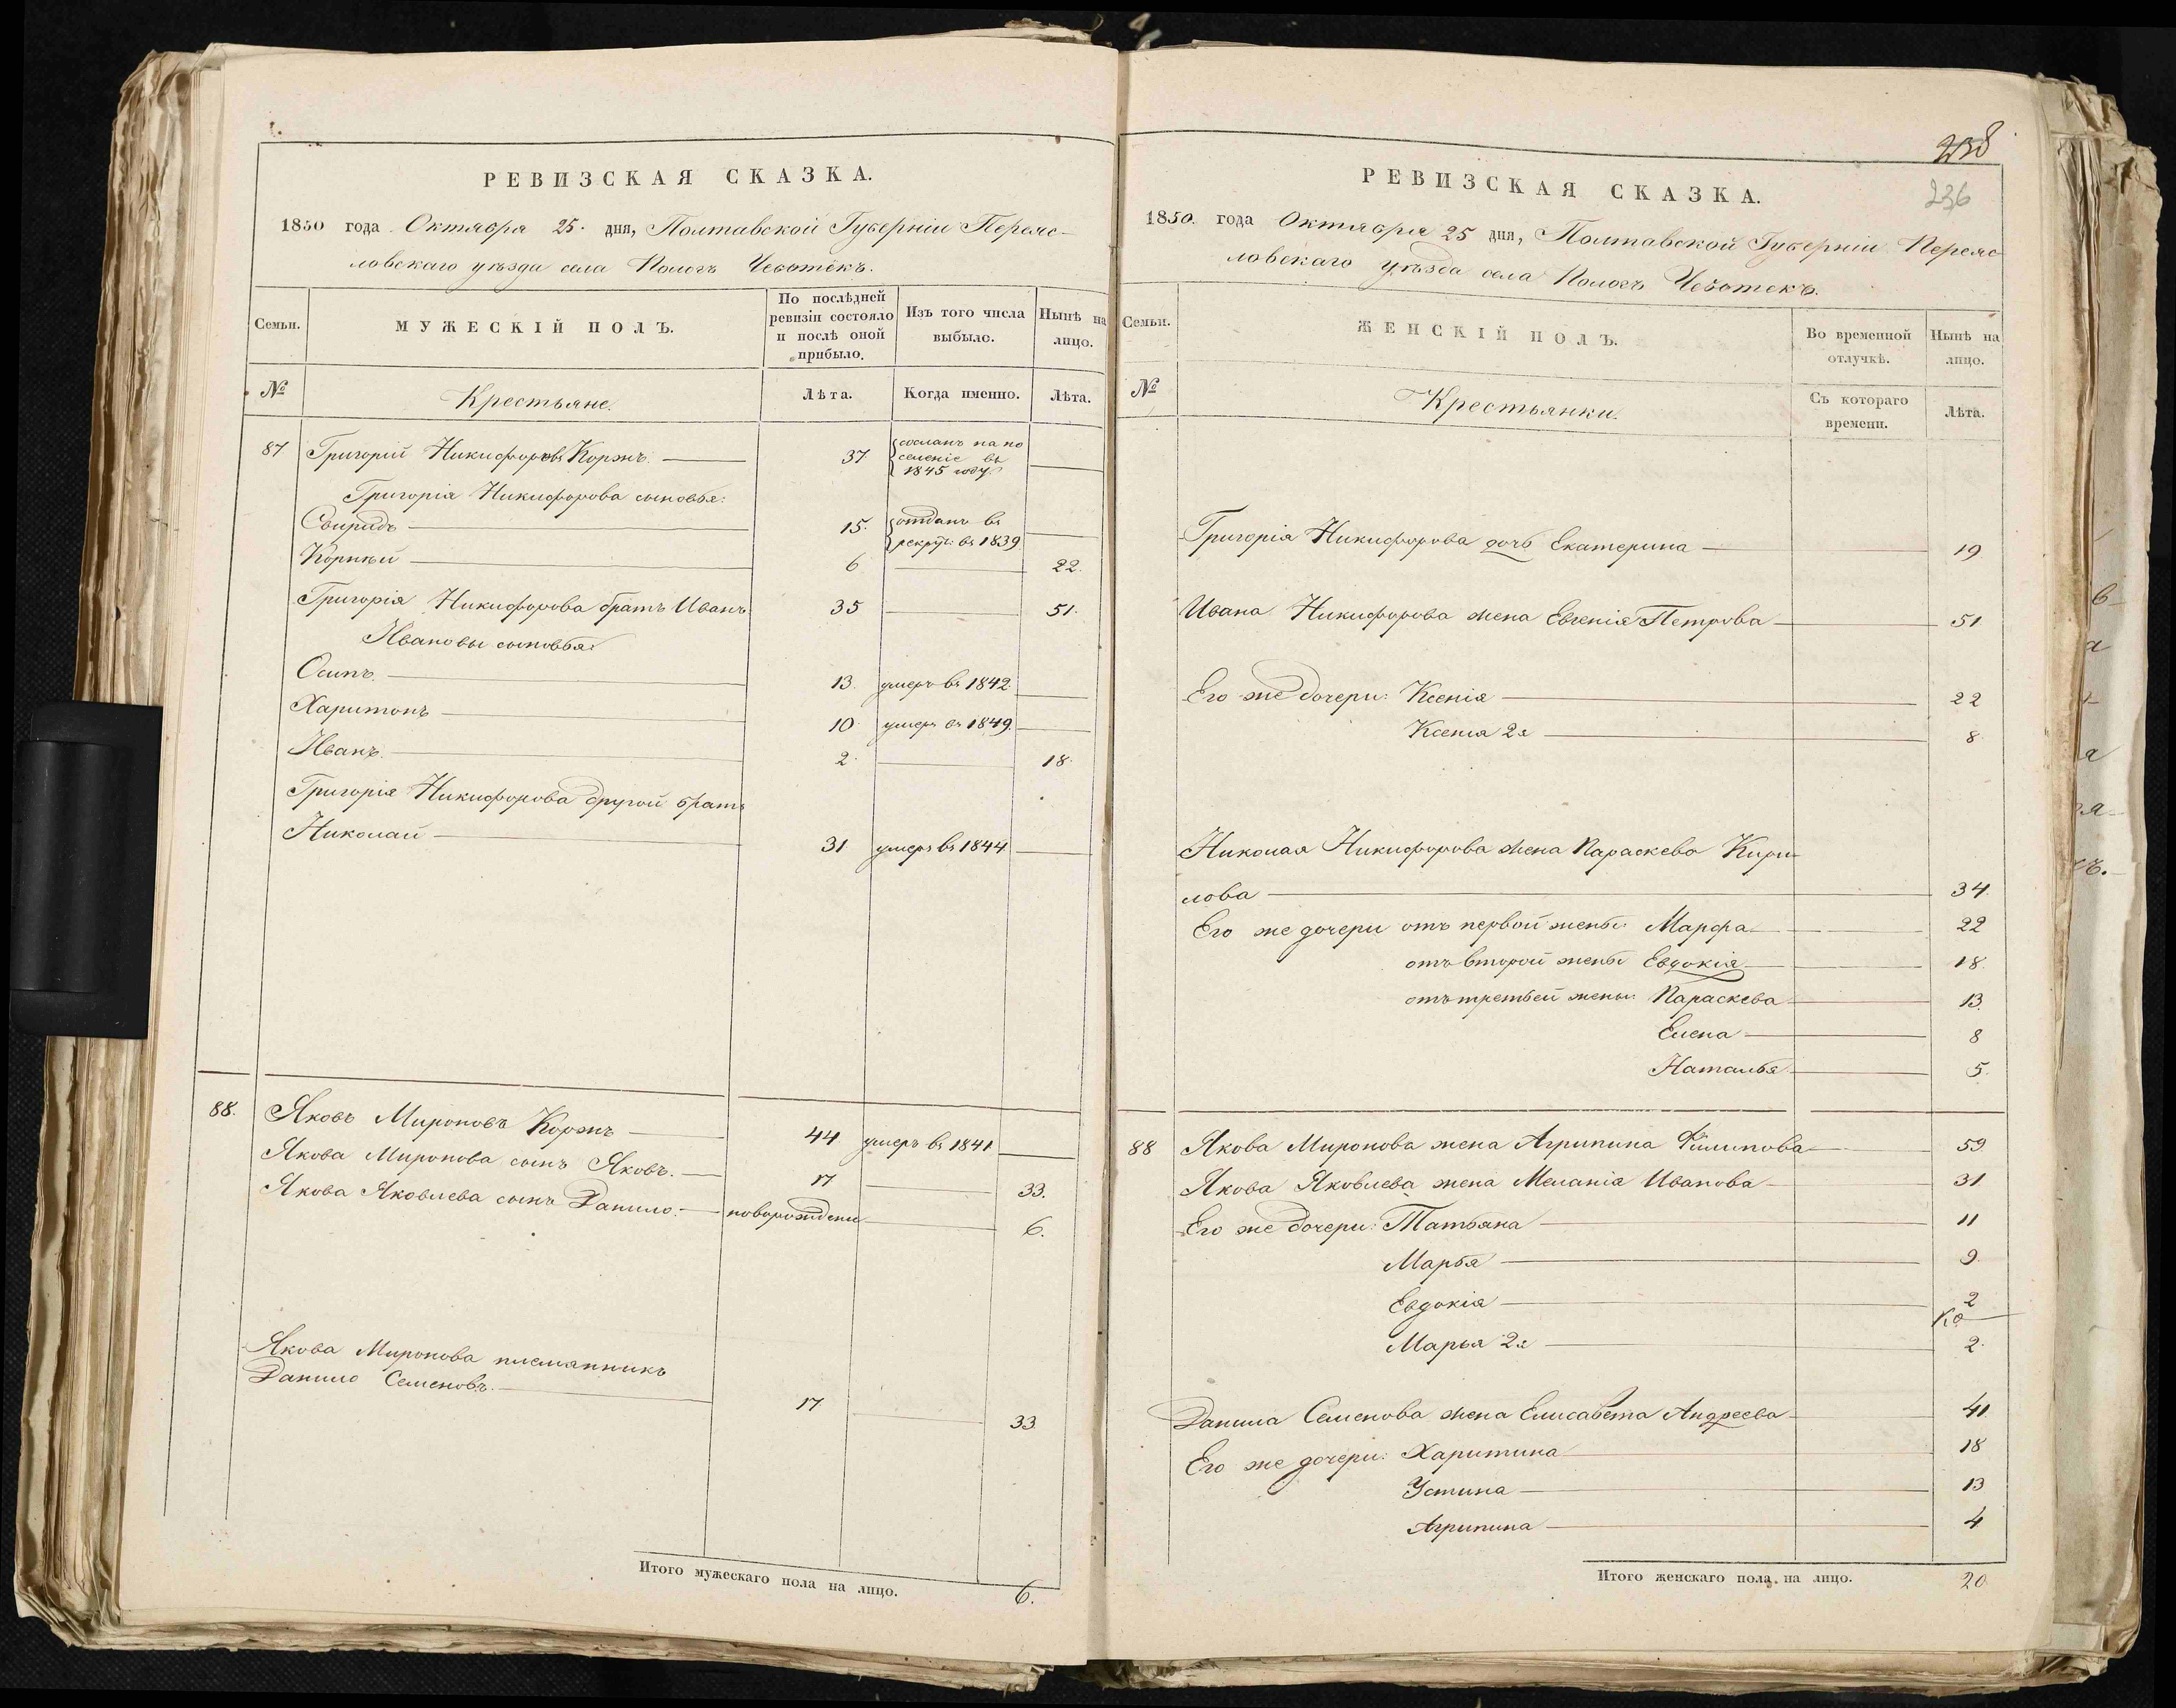 РЕВИЗСКАЯ СКАЗКА.
1850 года Октября 25 дня, Полтавской Губерніи Переяс-
ловскаго уѣзда села Пологъ Чеботекъ.
Семьи.
МУЖЕСКІЙ ПОЛЪ.
По послѣдней ревизіи состояло и послѣ оной прибыло.
Изъ того числа выбыло.
Нынѣ на лицо.
№
Крестьяне.
Лѣта.
Когда именно.
Лѣта.
87 Григорій Никифоровъ Коржъ 37 сосланъ на по
селеніе въ
1845 году
Григорія Никифорова сыновья:
Свиридъ 15. отданъ въ
рекруты въ 1839
Корнѣй 6 22.
Григорія Никифорова братъ Иванъ 35 51.
Ивановы сыновья:
Осипъ. 13. умеръ въ 1842.
Харитонъ 10 умеръ въ 1849.
Иванъ. 2. 18.
Григорія Никифорова другой братъ
Николай 31 умеръ въ 1844
88. Яковъ Мироновъ Коржъ 44 умеръ въ 1841
Якова Миронова сынъ Яковъ. 17 33.
Якова Яковлева сынъ Данило. новорожденъ 6.
Якова Миронова племянникъ
Данило Семеновъ. 17 33
Итого мужескаго пола на лицо. 6.
238
236
РЕВИЗСКАЯ СКАЗКА.
1850. года Октября 25 дня, Полтавской Губерніи Переяс
ловскаго уѣзда села Пологъ Чеботекъ.
Семьи.
ЖЕНСКІЙ ПОЛЪ.
Во временной отлучкѣ.
Нынѣ на лицо.
№
Крестьянки.
Съ котораго времени.
Лѣта.
Григорія Никифорова дочь Екатерина 19
Ивана Никифорова жена Евгенія Петрова 51
Его же дочери: Ксенія 22
Ксенія 2я 8
Николая Никифорова жена Параскева Кири
лова 34.
Его же дочери отъ первой жены: Марфа 22
отъ второй жены Евдокія 18.
отъ третьей жены: Параскева 13.
Елена 8
Наталья 5.
88 Якова Миронова жена Агрипина Филипова 59.
Якова Яковлева жена Меланія Иванова 31
Его же дочери: Татьяна 11
Марья 9.
Евдокія 2
Марья 2я 2.
Данила Семенова жена Елисавета Андреева 41.
Его же дочери: Харитина 18
Устина 13
Агрипина 4
Итого женскаго пола на лицо. 20